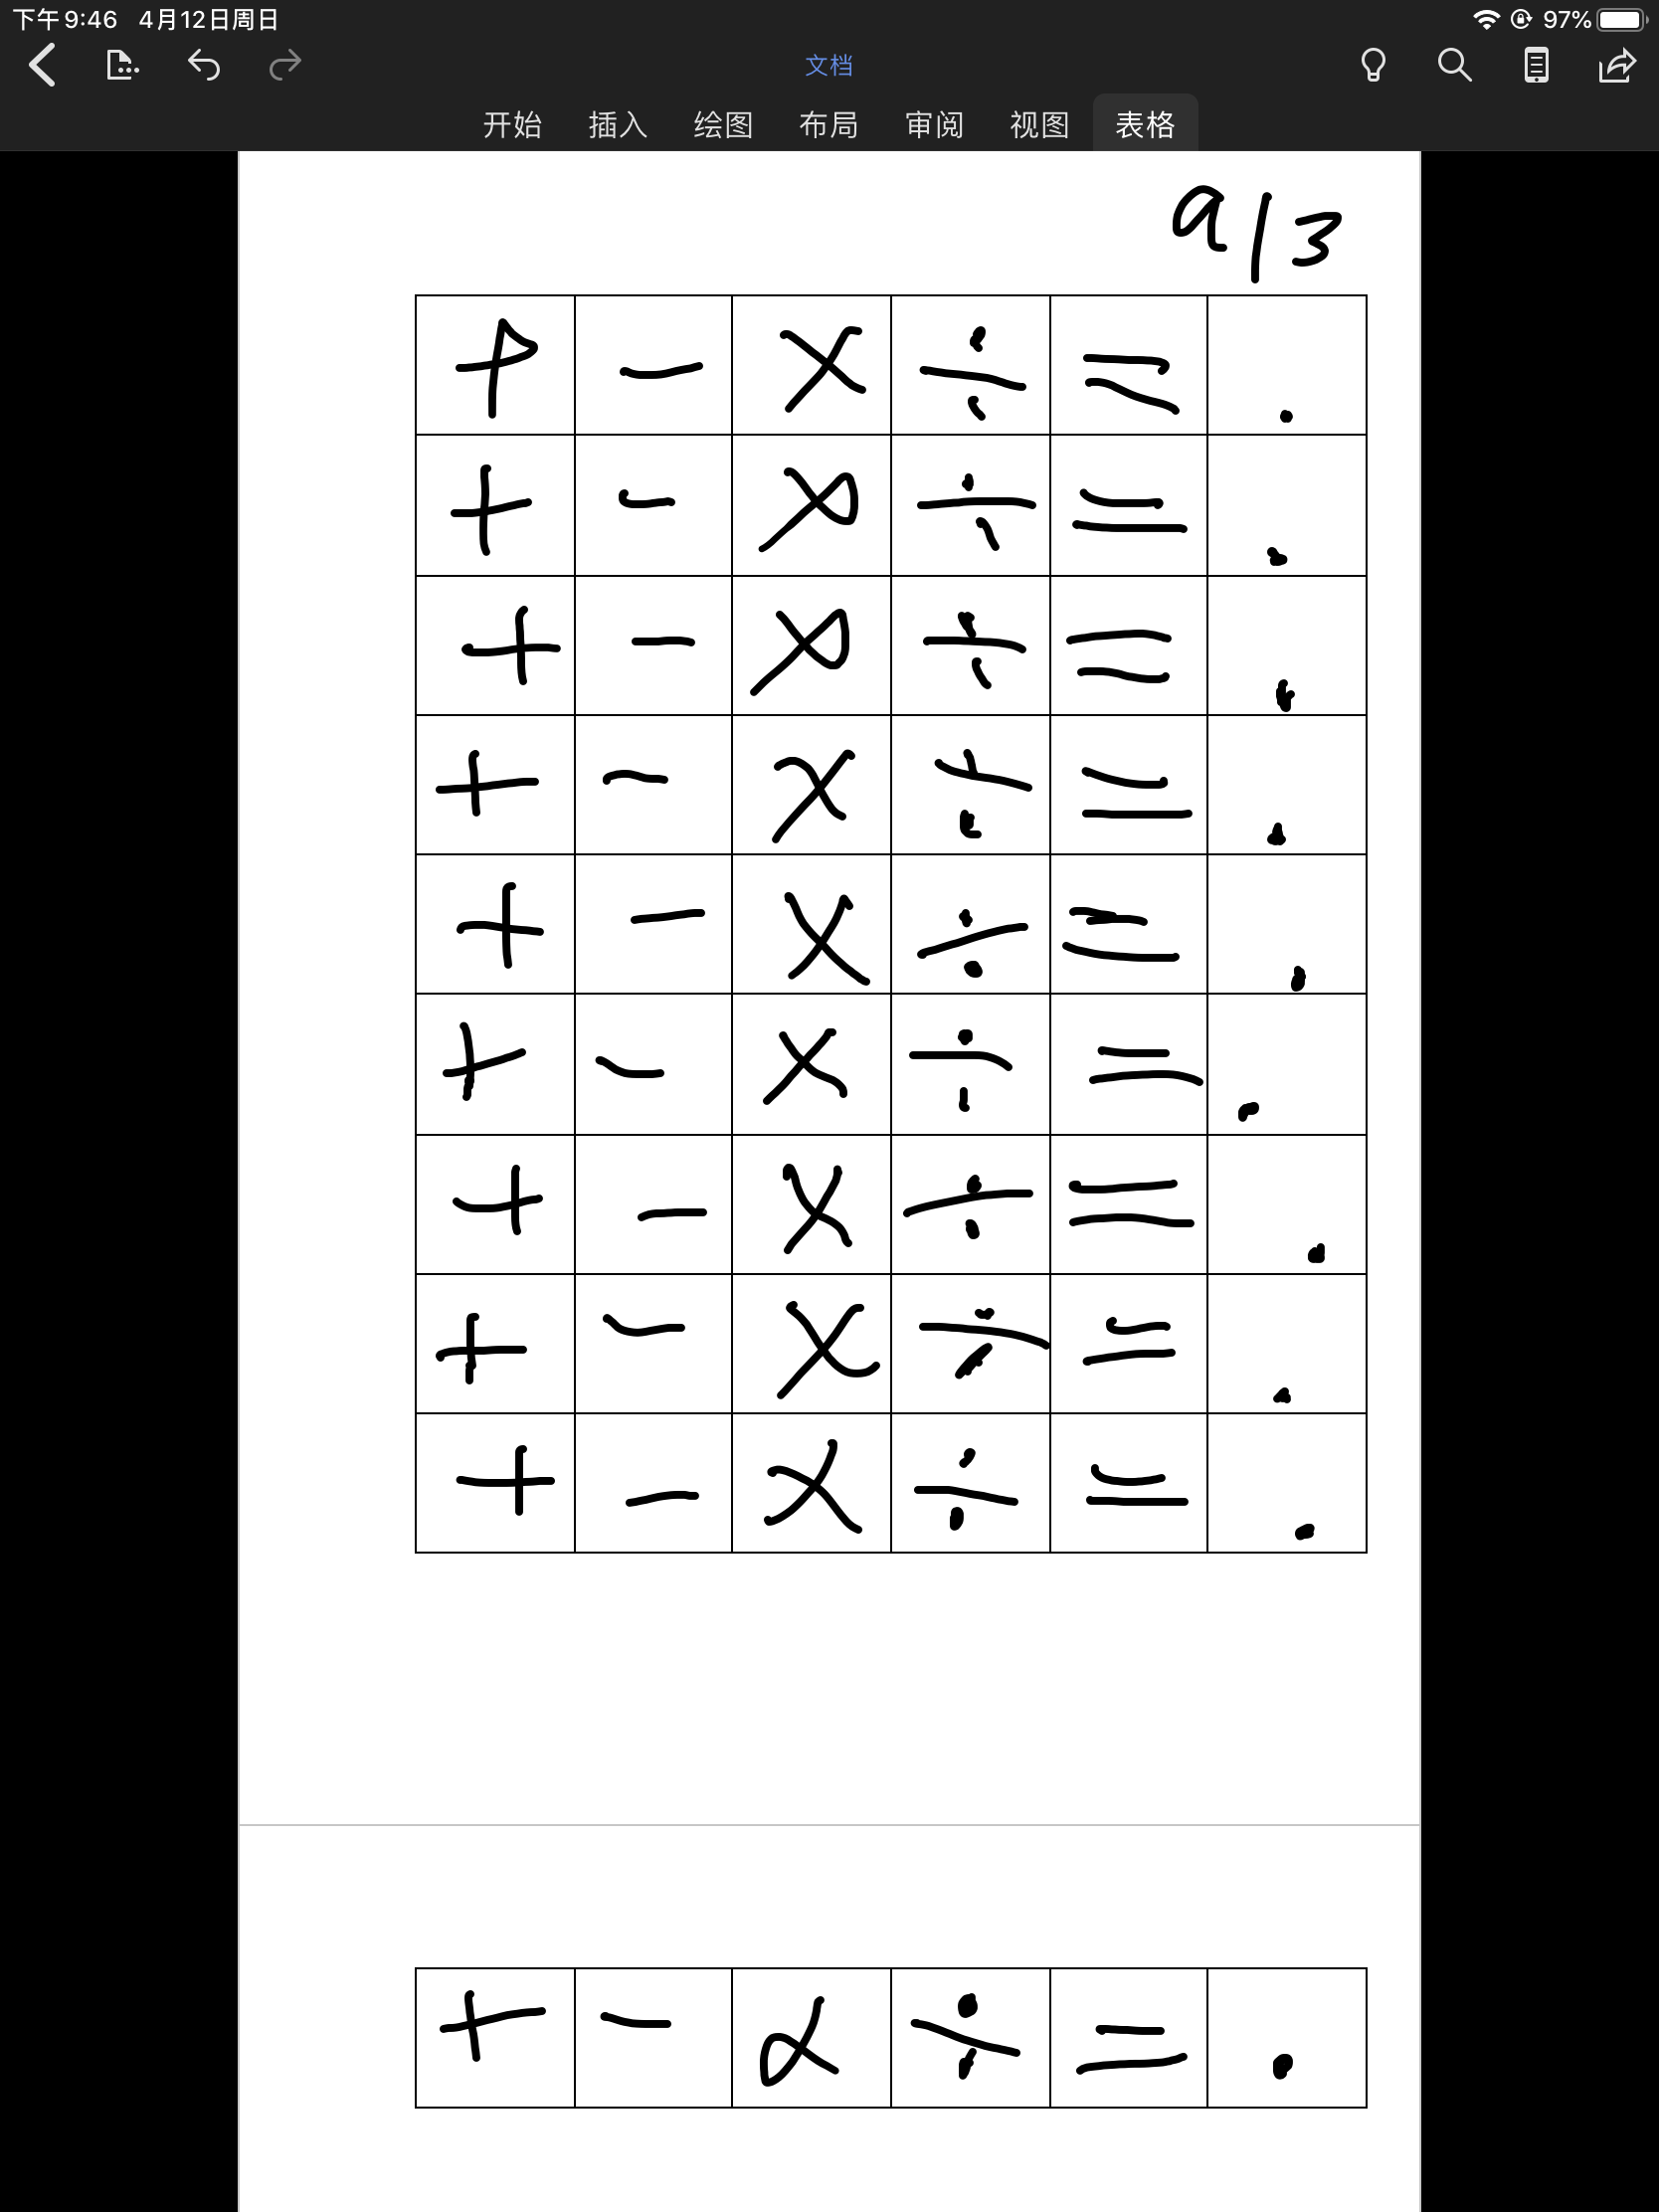 下午9:46 4月12日周日 97%
文档
开始 插入 绘图 布局 审阅 视图 表格
a/3
+ − × ÷ = .
+ − × ÷ = .
+ − × ÷ = .
+ − × ÷ = .
+ − × ÷ = .
+ − × ÷ = .
+ − × ÷ = .
+ − × ÷ = .
+ − × ÷ = .
+ − × ÷ = .